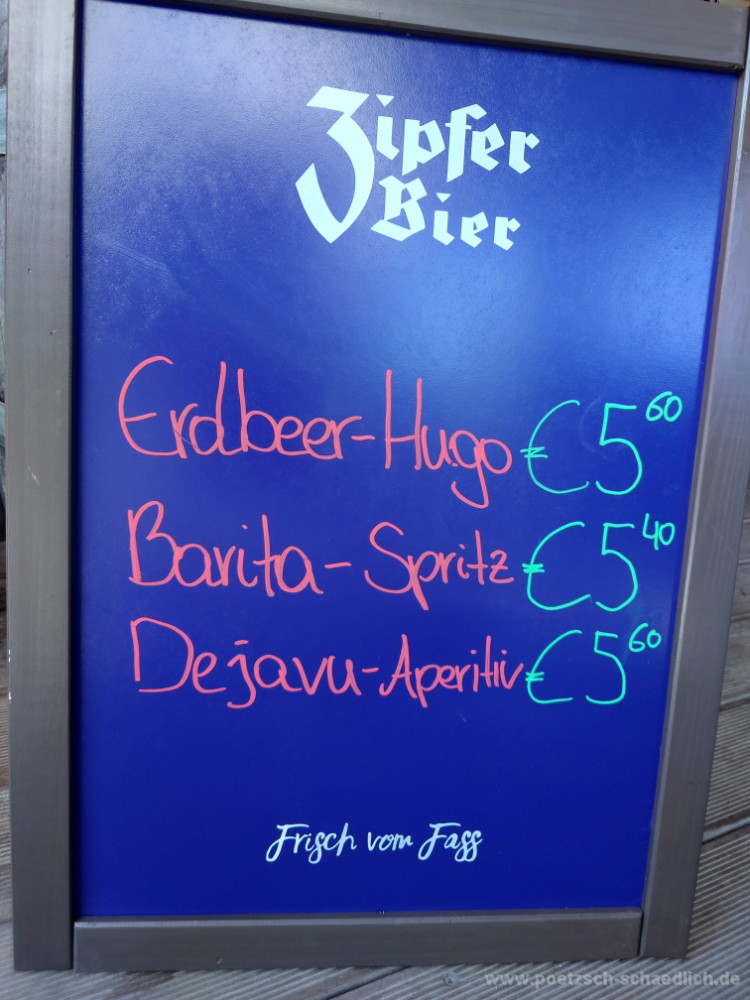 Zipfer
Bier
Erdbeer-Hugo €5 60
Barita-Spritz €5 40
Dejavu-Aperitiv €5 60
Frisch vom Fass
www.poetzsch-schaedlich.de